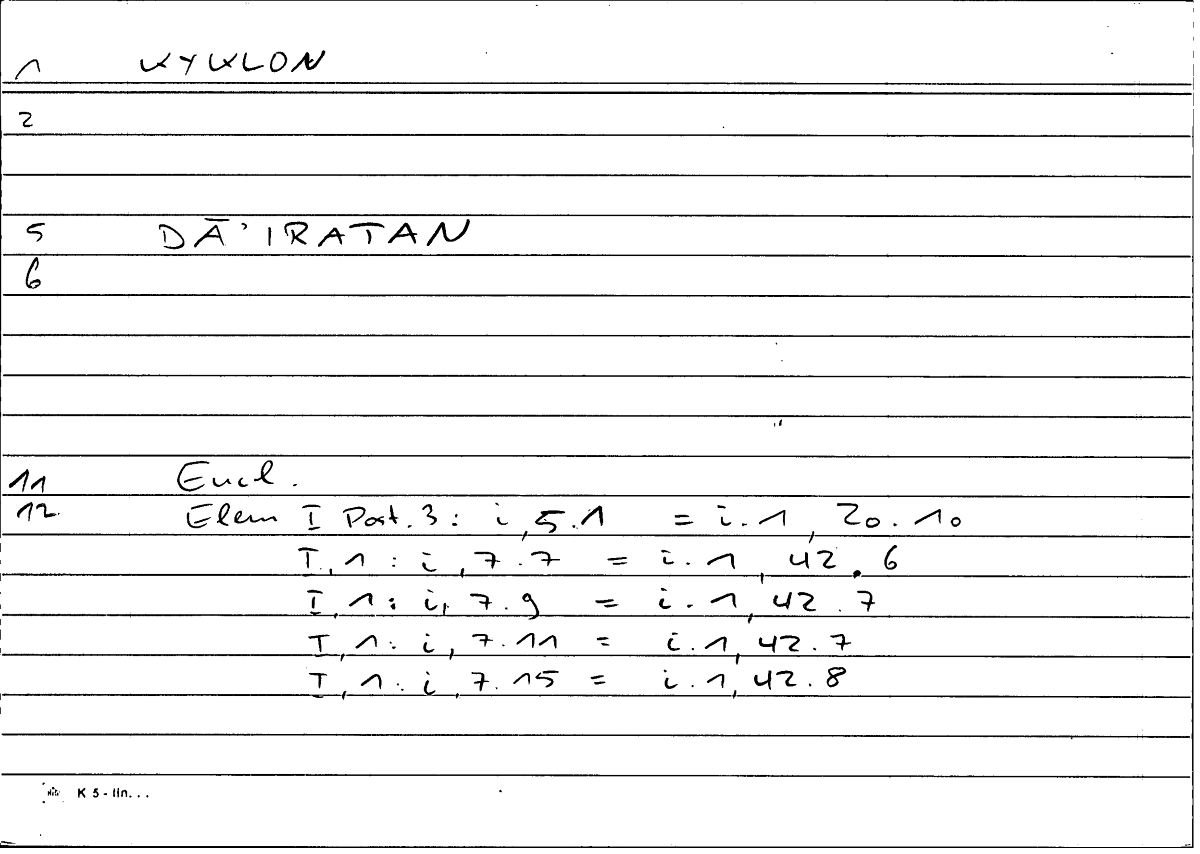 1 KYKLON
2
5 DĀ'IRATAN
6
11 Eucl.
12. Elem I Post. 3: i,5.1 = i.1,20.10
I,1: i,7.7 = i.1,42.6
I,1: i,7.9 = i.1,42.7
I,1: i,7.11 = i.1,42.7
I,1: i,7.15 = i.1,42.8
K 5 - lin...